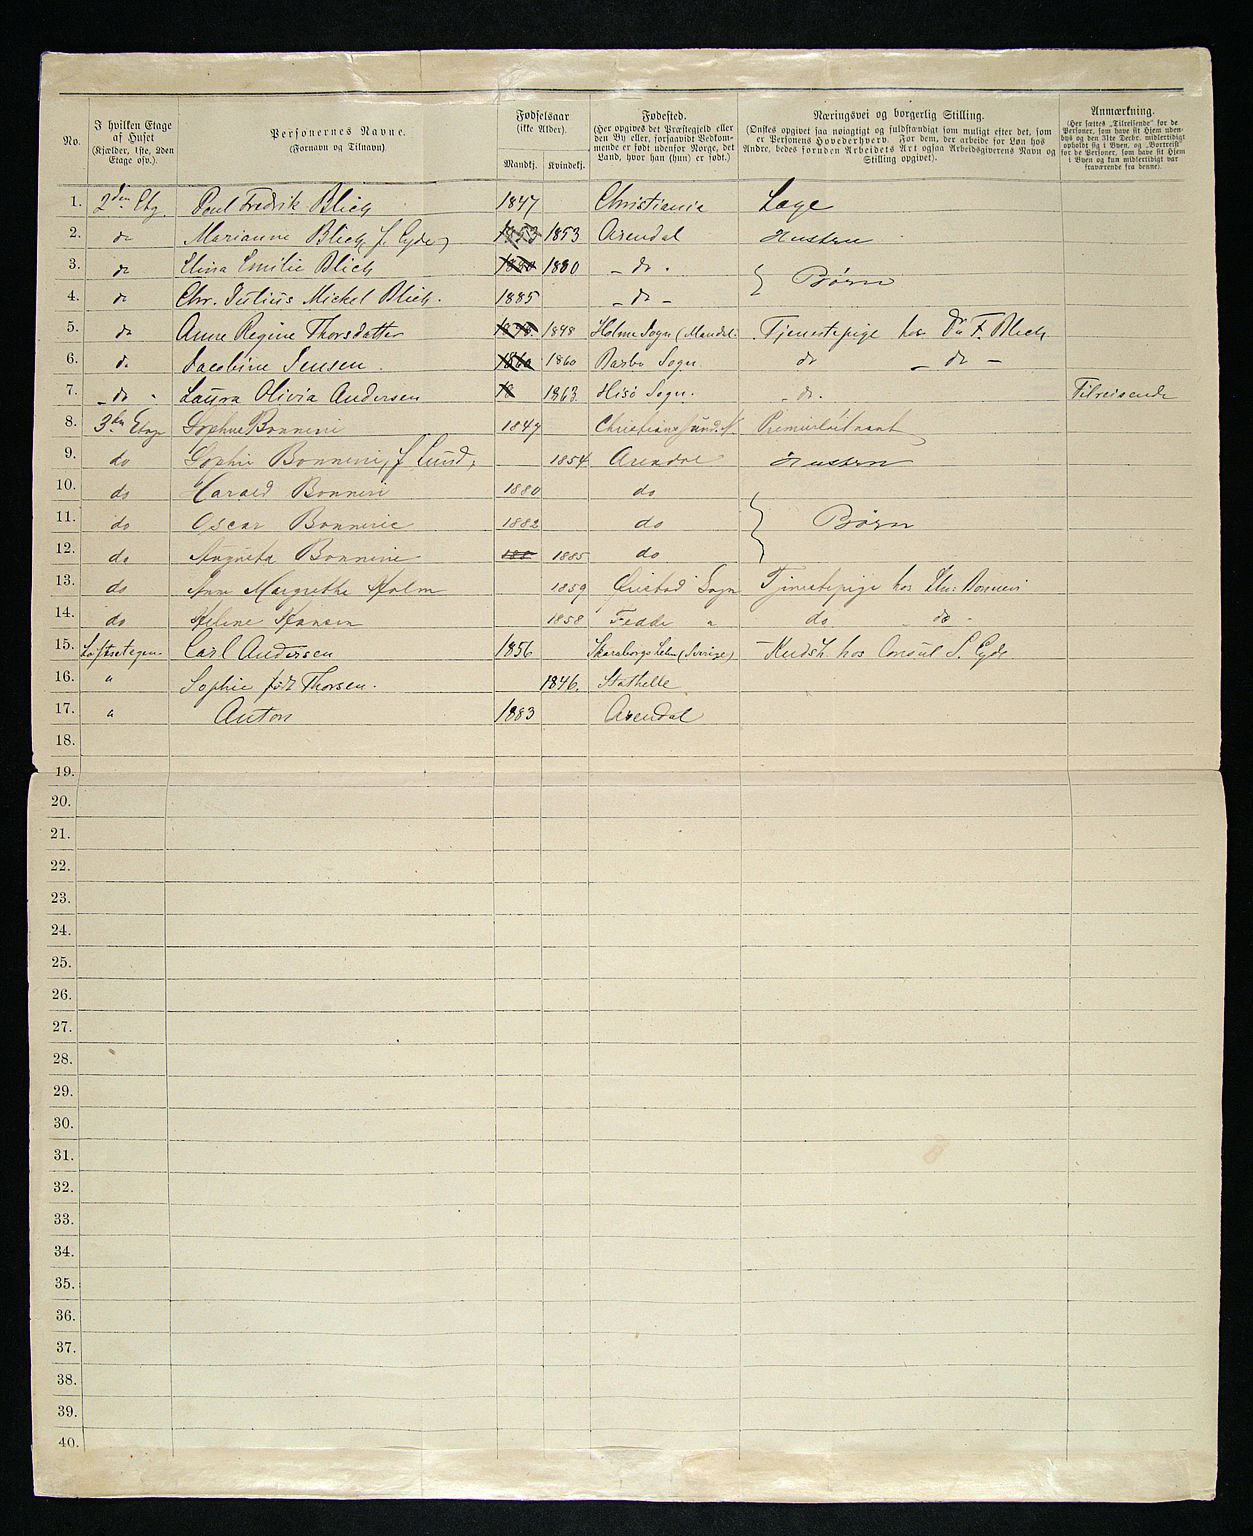 No.
I hvilken Etage
af Huset
(Kjælder, 1ste, 2den
Etage osv.).
Personernes Navne.
(Fornavn og Tilnavn).
Fødselsaar
(ikke Alder).
Mandkj. Kvindekj.
Fødested.
(Her opgives det Præstegjeld eller
den By eller, forsaavidt Vedkom-
mende er født udenfor Norge, det
Land, hvor han (hun) er født.)
Næringsvei og borgerlig Stilling.
(Ønskes opgivet saa nøiagtigt og fuldstændigt som muligt efter det, som
er Personens Hovederhverv. For dem, der arbeide for Løn hos
Andre, bedes foruden Arbeidets Art ogsaa Arbeidsgiverens Navn og
Stilling opgivet).
Anmærkning.
(Her sættes „Tilreisende“ for de
Personer, som have sit Hjem uden-
bys og den 31te Decbr. midlertidigt
opholdt sig i Byen, og „Bortreist“
for de Personer, som have sit Hjem
i Byen og kun midlertidigt var
fraværende fra denne).
1. 2den Etg. Poul Fredrik Blich 1847 Christiania Læge
2. do Marianne Blich f. Eyde 1853 1853 Arendal Hustru
3. do Elina Emilie Blich 1880 1880 – do – } Børn
4. do Chr. Julius Mickel Blich. 1885 – do –
5. do Anne Regine Thorsdatter 1848 1848 Holme Sogn (Mandal. Tjenestepige hos Dr F. Blich
6. do Jacobine Jensen. 1860 1860 Barbo Sogn. do – do –
7. – do – Laura Olivia Andersen 18 1863. Hisø Sogn. – do. Tilreisende
8. 3die Etage Sophus Bonnevie 1847 Christianssund N. Premierløitnant
9. do Sophie Bonnevie, f. Lund, 1854 Arendal Hustru
10. do Harald Bonnevie 1880 do
11. do Oscar Bonnevie 1882 do } Børn
12. do Augusta Bonnevie 188 1885 do
13. do Ann Margrethe Holm 1859 Øiestad Sogn Tjenestepige hos Bonnevie
14. do Helene Hansen 1858 Fedde " do do
15. Loftsetagen Carl Andersen 1856 Skaraborgs Lehn (Sverige) Kudsk hos Consul S. Eyde
16. " Sophie født Thorsen. 1846. Stathelle
17. " Anton 1883 Arendal
18.
19.
20.
21.
22.
23.
24.
25.
26.
27.
28.
29.
30.
31.
32.
33.
34.
35.
36.
37.
38.
39.
40.